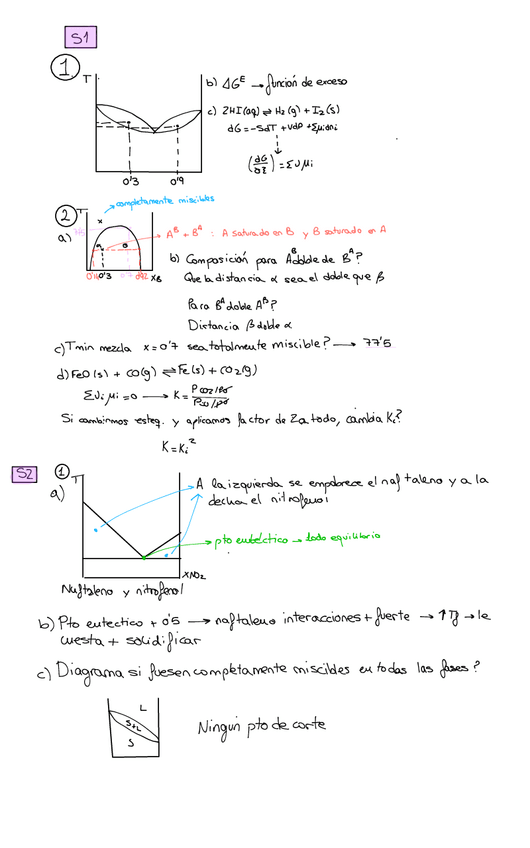 S1
1.
T
b) ΔG^E → función de exceso
c) 2HI(aq) ⇌ H₂(g) + I₂(s)
dG = -SdT + Vdp + Σμidni
(dG/∂ξ) = Συμi
0'3 0'9
→ completamente miscibles
2
a)
T
x
→ A^B + B^A : A saturado en B y B saturado en A
0'3
x_B
b) Composición para A^B doble de B^A?
Que la distancia α sea el doble que β
Para B^A doble A^B?
Distancia β doble α
c) Tmin mezcla x = 0'7 sea totalmente miscible? → 77'5
d) FeO(s) + CO(g) ⇌ Fe(s) + CO₂(g)
Συi μi = 0 → K = P co₂/pº / Pco/pº
Si cambirmos esteq. y aplicamos factor de 2 a todo, cambia Ki?
K = Ki²
S2
1
a)
T
→ A la izquierda se empobrece el naftaleno y a la
decha el nitrofenol
→ pto eutéctico → todo equilibrio
XNO₂
Naftaleno y nitrofenol
b) Pto eutectico + 0'5 → naftaleno interacciones + fuerte → ↑Tf → le
cuesta + solidificar
c) Diagrama si fuesen completamente miscibles en todas las fases?
L
S+L
S
Ningún pto de corte